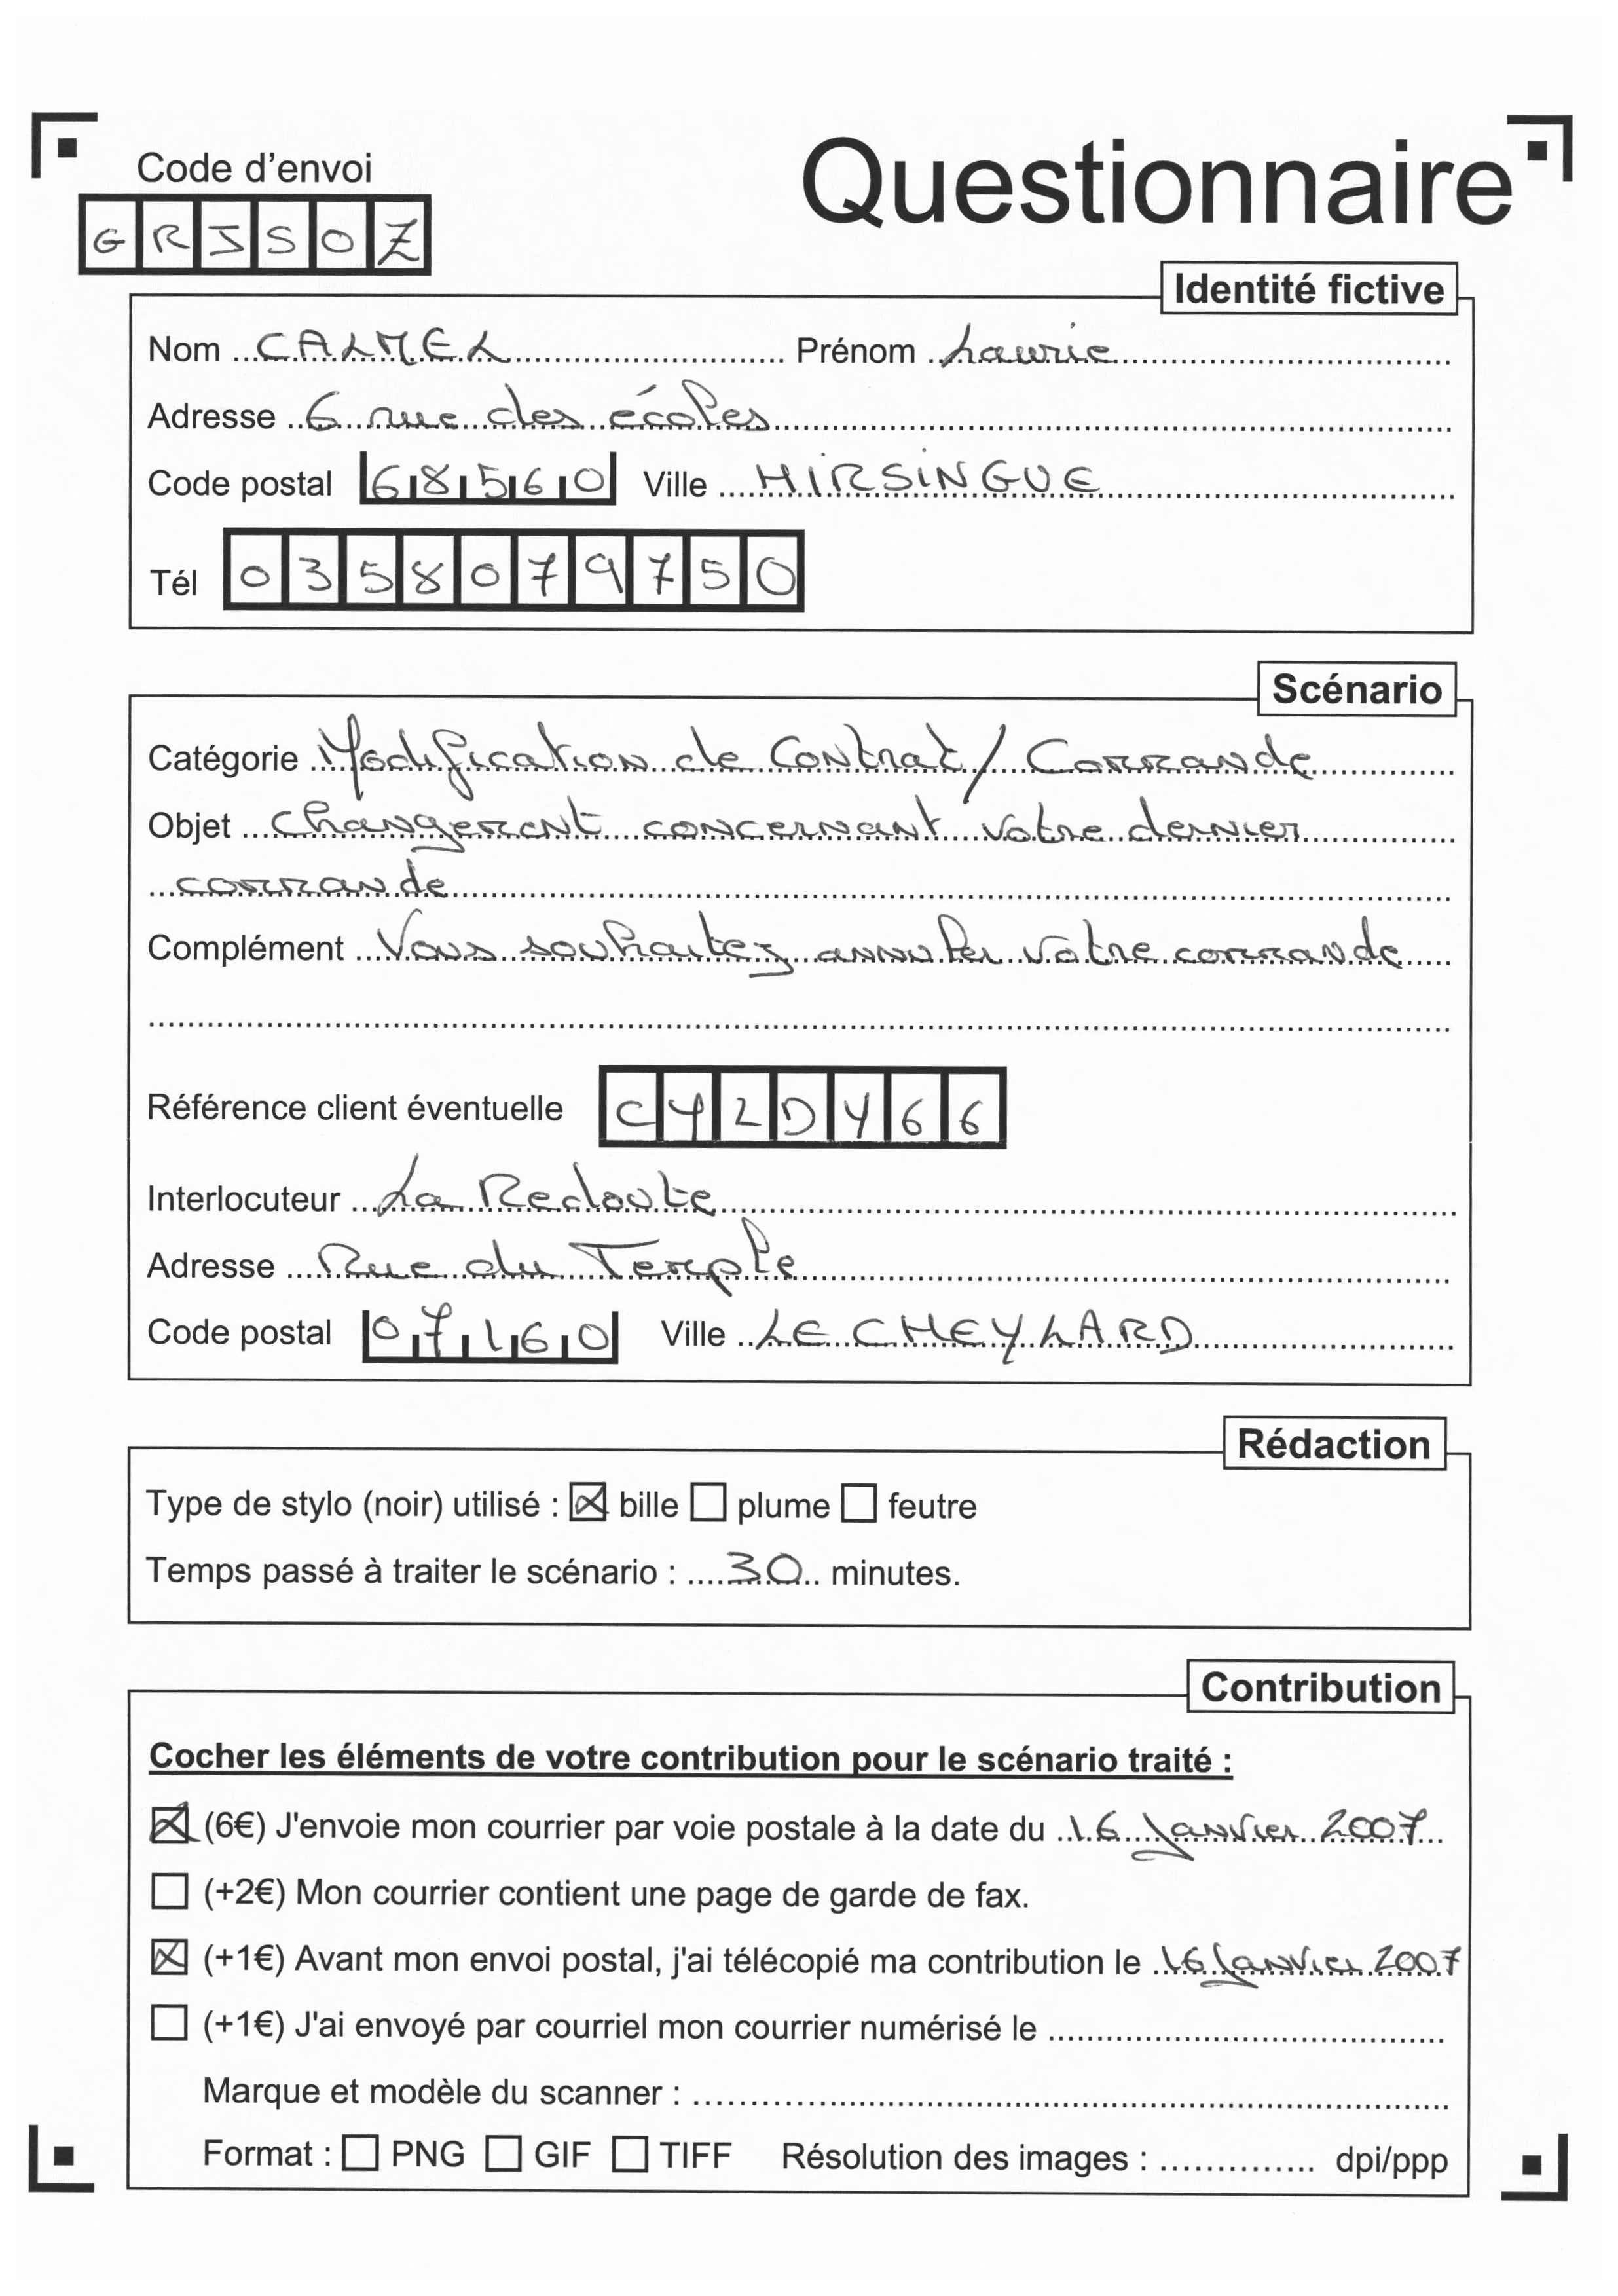 Questionnaire
Code d'envoi
GRISOZ
Identité fictive
Nom CALMEL Prénom Laurie
Adresse 6 rue des écoles
Code postal 68560 Ville HIRSINGUE
Tél 0358079750
Scénario
Catégorie Modification de Contrat / Commande
Objet changement concernant votre dernier
commande
Complément Vous souhaitez annuler votre commande
Référence client éventuelle CYLDY66
Interlocuteur La Redoute
Adresse Rue du Temple
Code postal 07160 Ville LE CHEYLARD
Rédaction
Type de stylo (noir) utilisé : ☒ bille ☐ plume ☐ feutre
Temps passé à traiter le scénario : 30 minutes.
Contribution
Cocher les éléments de votre contribution pour le scénario traité :
☒ (6€) J'envoie mon courrier par voie postale à la date du 16 Janvier 2007
☐ (+2€) Mon courrier contient une page de garde de fax.
☒ (+1€) Avant mon envoi postal, j'ai télécopié ma contribution le 16 Janvier 2007
☐ (+1€) J'ai envoyé par courriel mon courrier numérisé le
Marque et modèle du scanner :
Format : ☐ PNG ☐ GIF ☐ TIFF Résolution des images : dpi/ppp